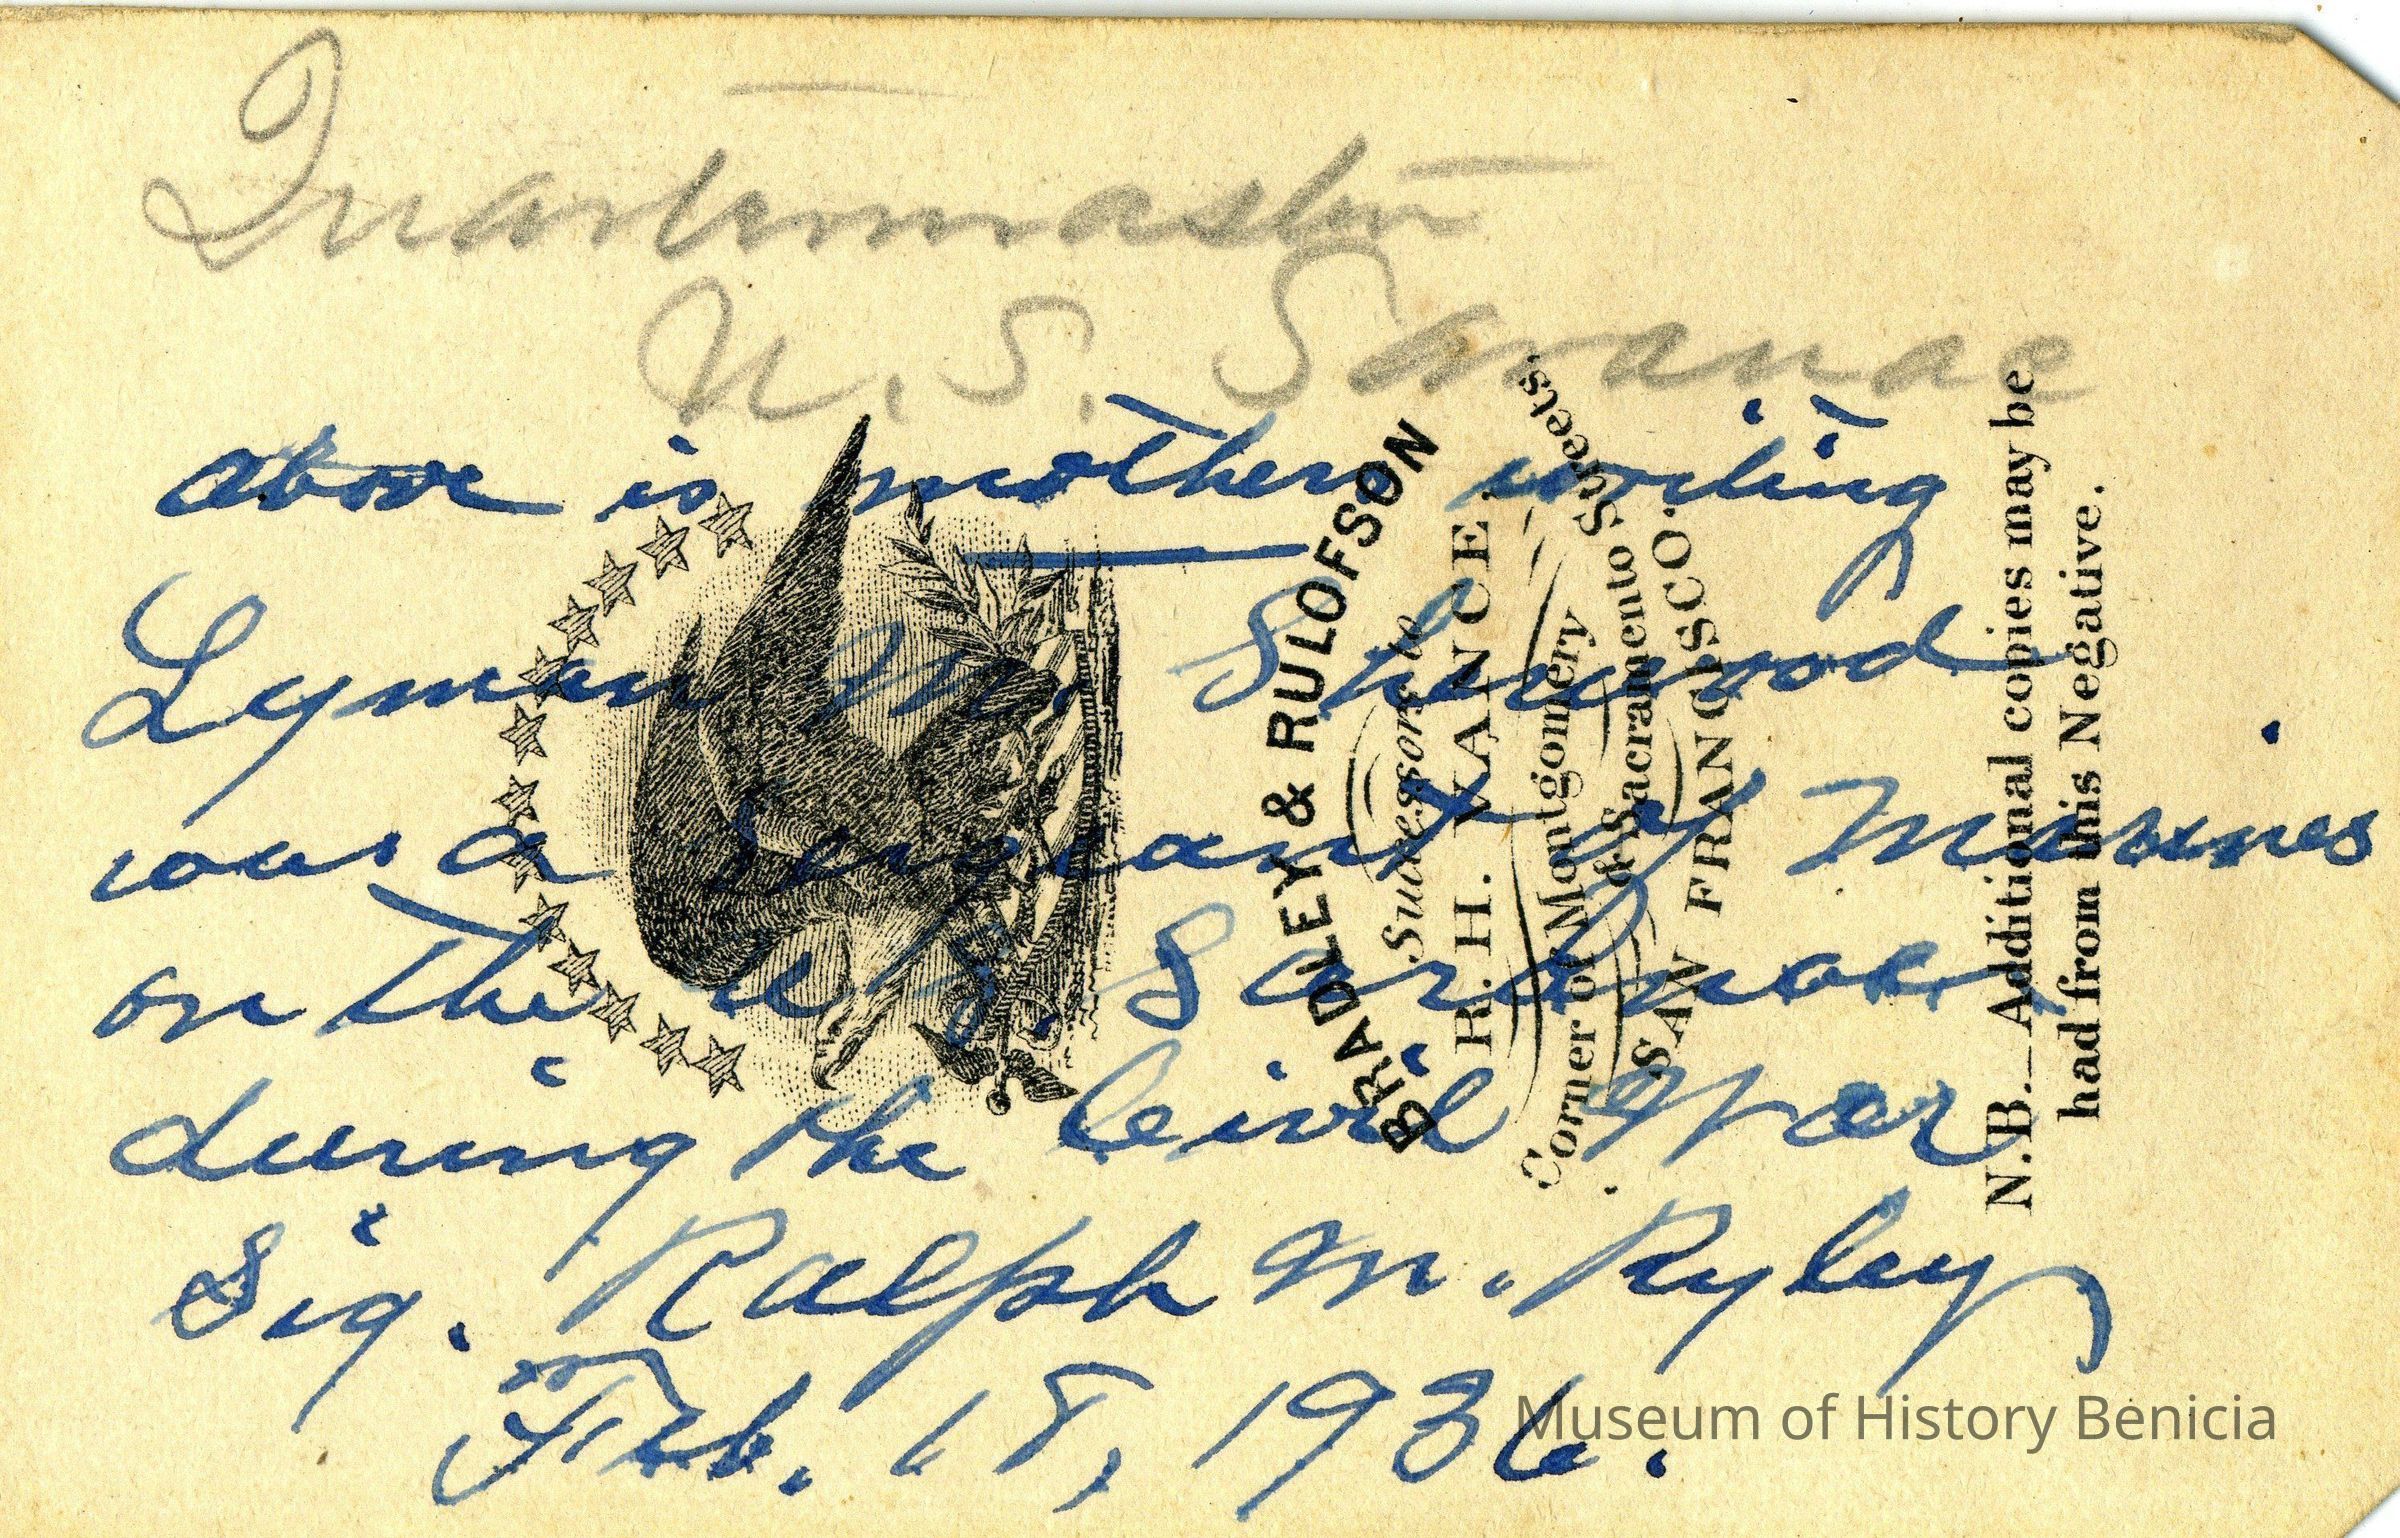 Quartermaster
U.S. Saranac
above is mothers writing
Lyman M. Sherwood
was a sergeant of Marines
on the U.S. Saranac
during the Civil War
Sig. Ralph M. Ryley
Feb. 18, 1936.
BRADLEY & RULOFSON
Successors to
R. H. VANCE,
Corner of Montgomery
& Sacramento Streets,
SAN FRANCISCO.
N.B._ Additional copies may be
had from this Negative.
Museum of History Benicia